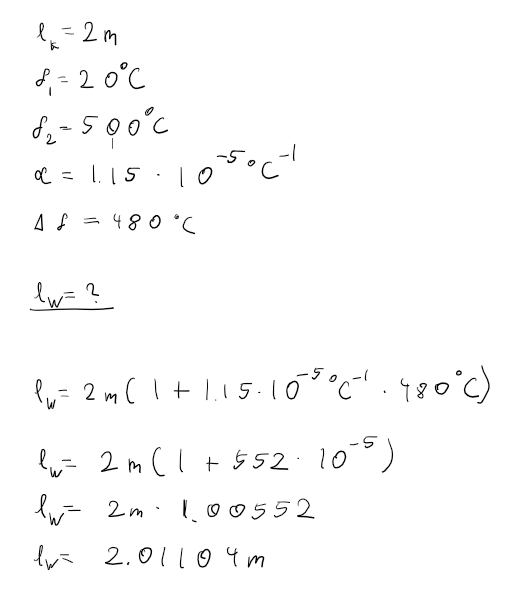 l_k = 2 m
ϑ₁ = 20°C
ϑ₂ = 500°C
α = 1.15 · 10⁻⁵ °C⁻¹
Δϑ = 480°C
l_w = ?
l_w = 2 m ( 1 + 1.15 · 10⁻⁵ °C⁻¹ · 480°C)
l_w = 2 m ( 1 + 552 · 10⁻⁵ )
l_w = 2 m · 1.00552
l_w = 2.01104 m